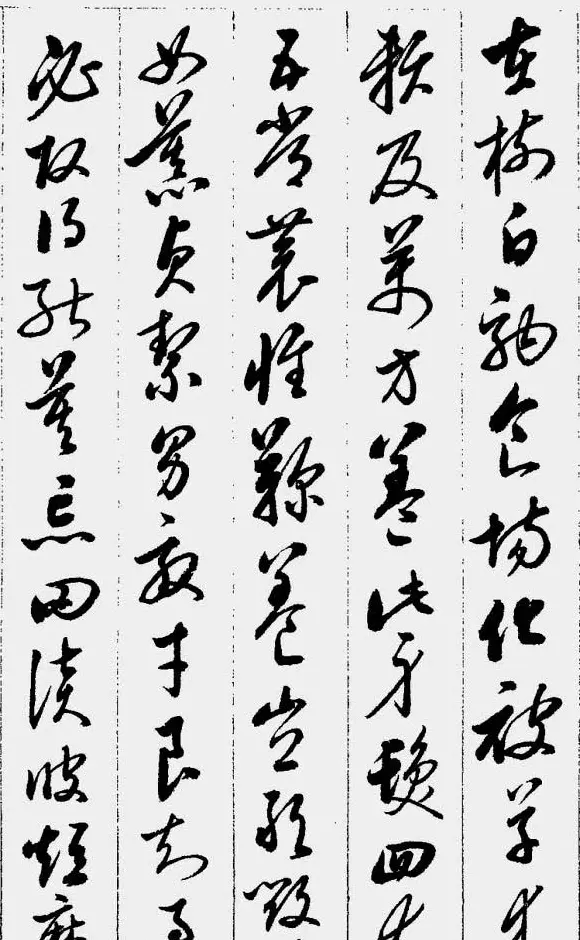 在樹白駒食場化被草木
賴及萬方蓋此身髮四大
五常恭惟鞠養豈敢毀
女慕貞絜男效才良知過
必改得能莫忘罔談彼短靡